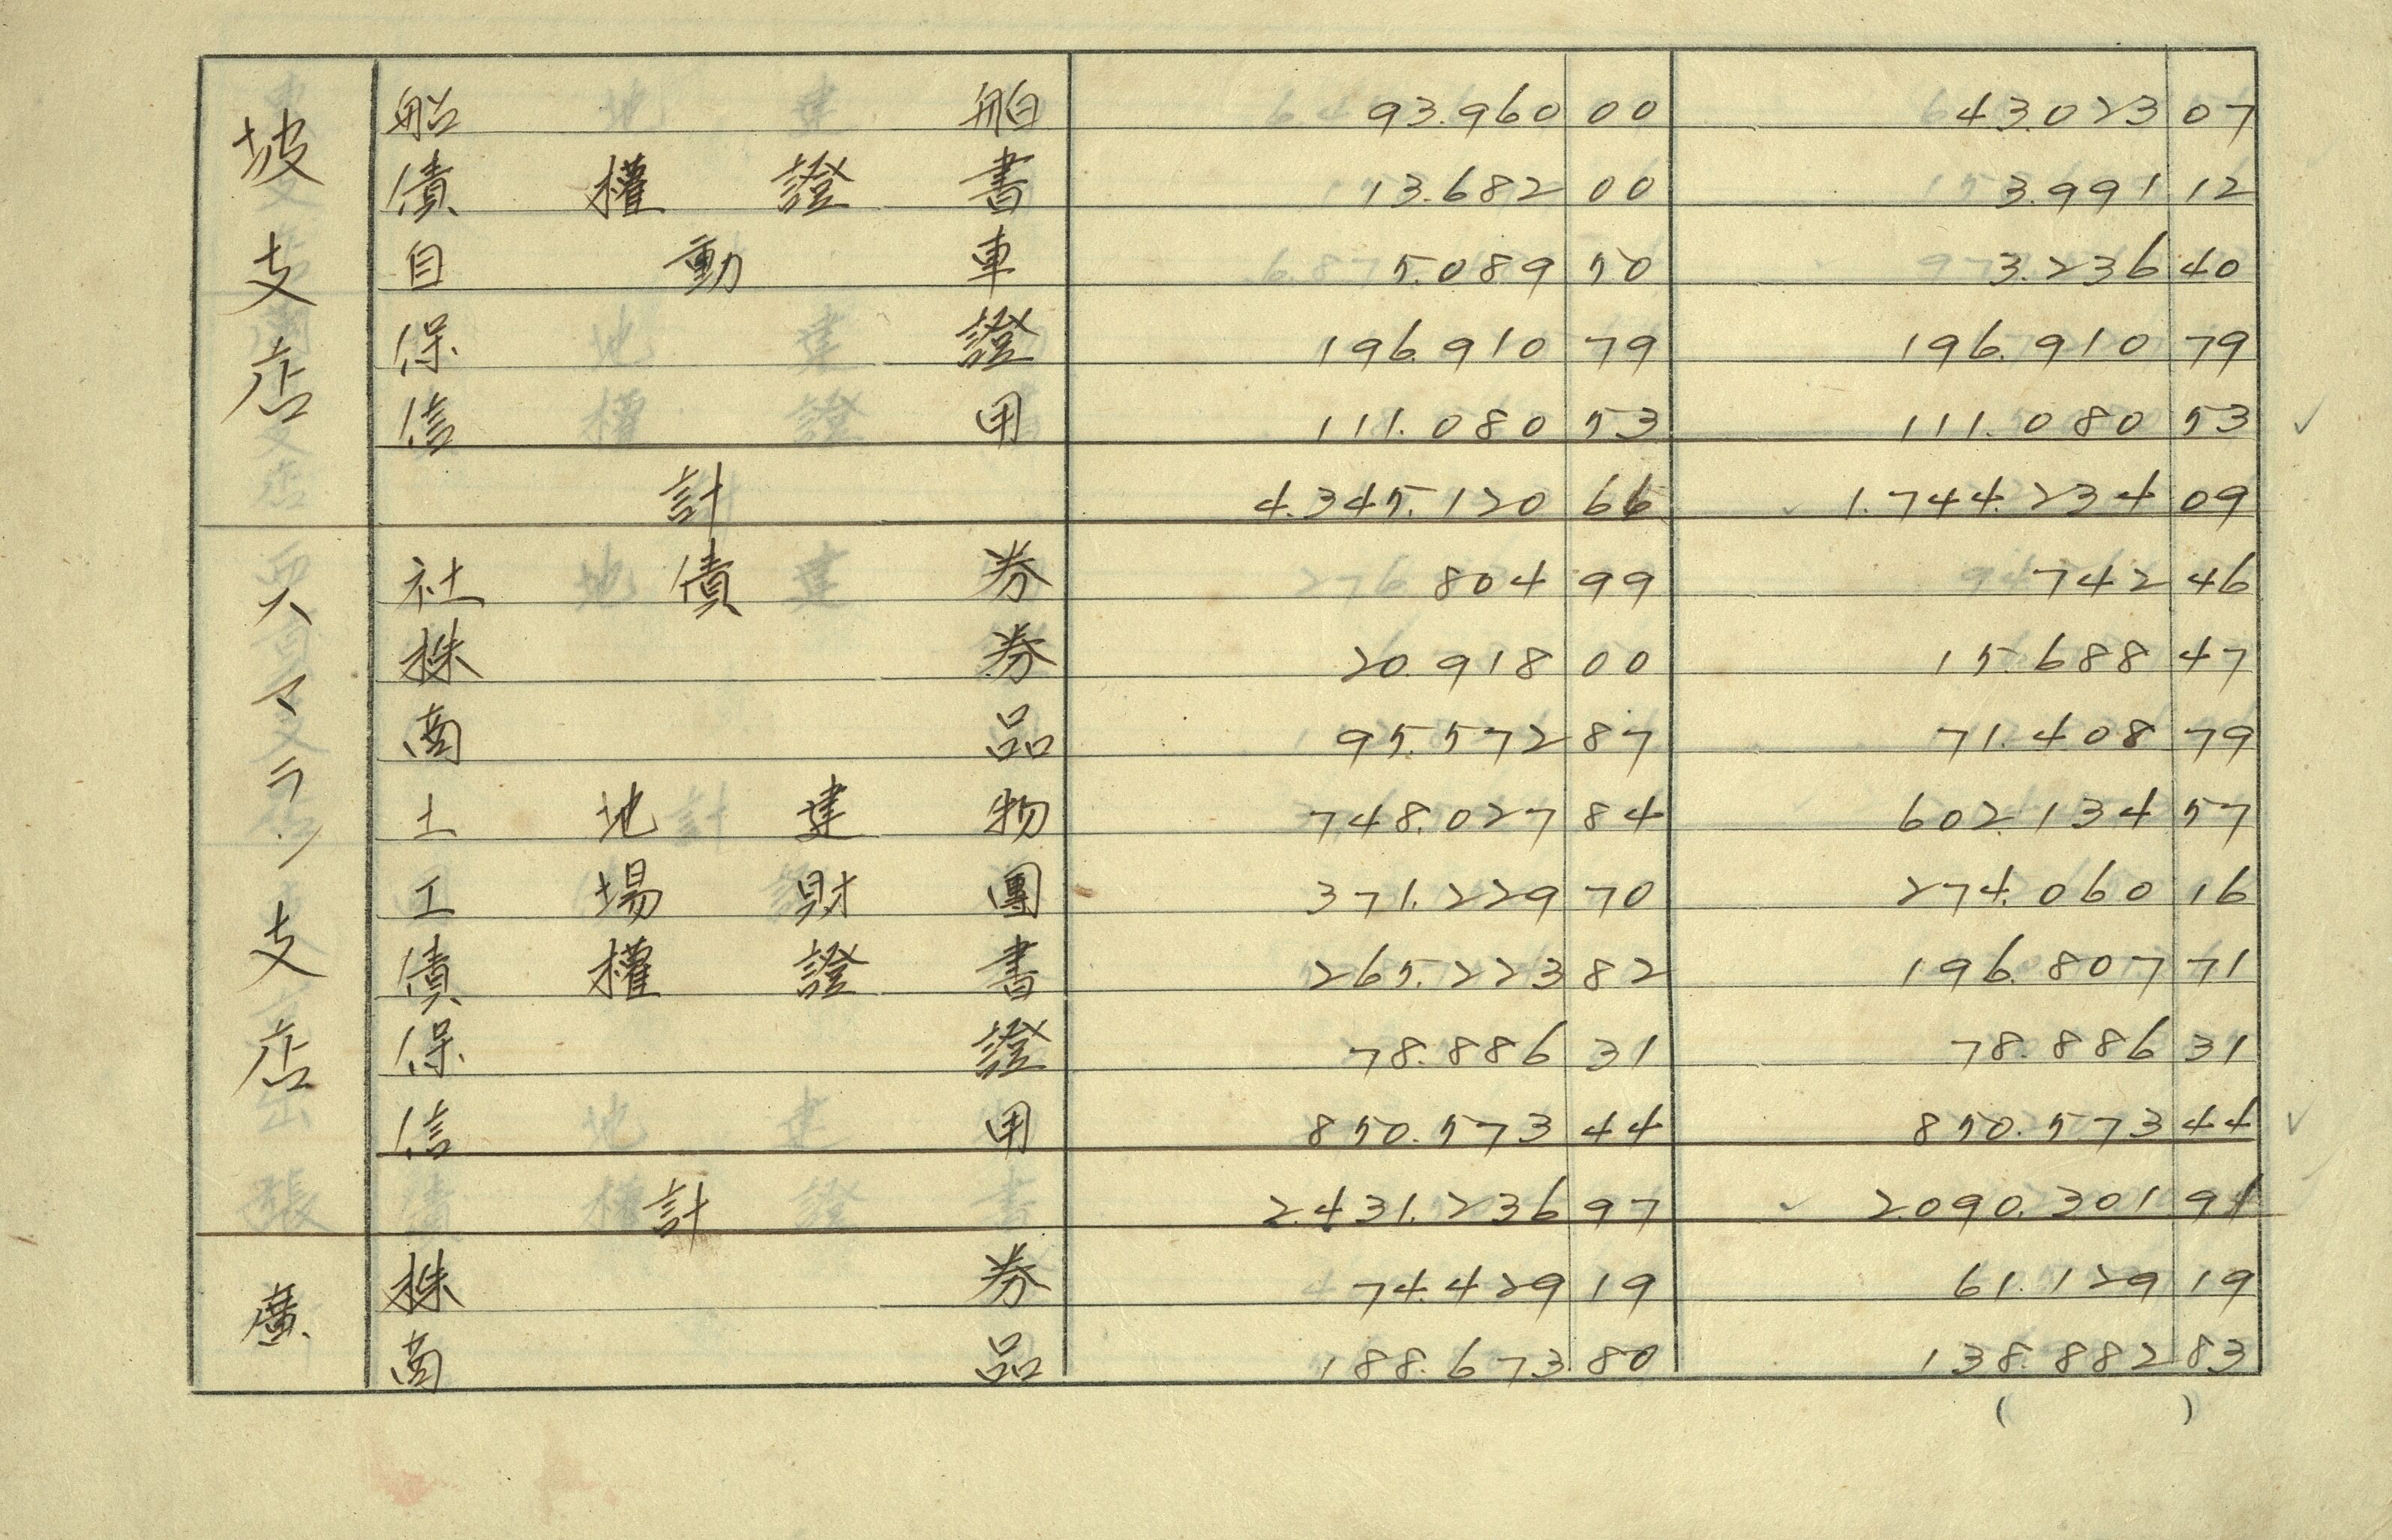 坡支店
船舶 93.960 00 43.023 07
債權證書 13.682 00 3.991 12
自動車 5.089 50 3.236 40
保證 196.910 79 196.910 79
信用 111.080 53 111.080 53 ✓
計 4.345.120 66 ✓ 1.744.234 09
スマラン支店
社債券 804 99 742 46
株券 20.918 00 15.688 47
商品 95.572 87 71.408 79
土地建物 748.027 84 602.134 57
工場財團 371.229 70 274.060 16
債權證書 265.223 82 196.807 71
保證 78.886 31 78.886 31
信用 850.573 44 850.573 44 ✓
計 2.431.236 97 ✓ 2.090.301 91
廣
株券 74.429 19 61.129 19
商品 188.673 80 138.882 83
( )